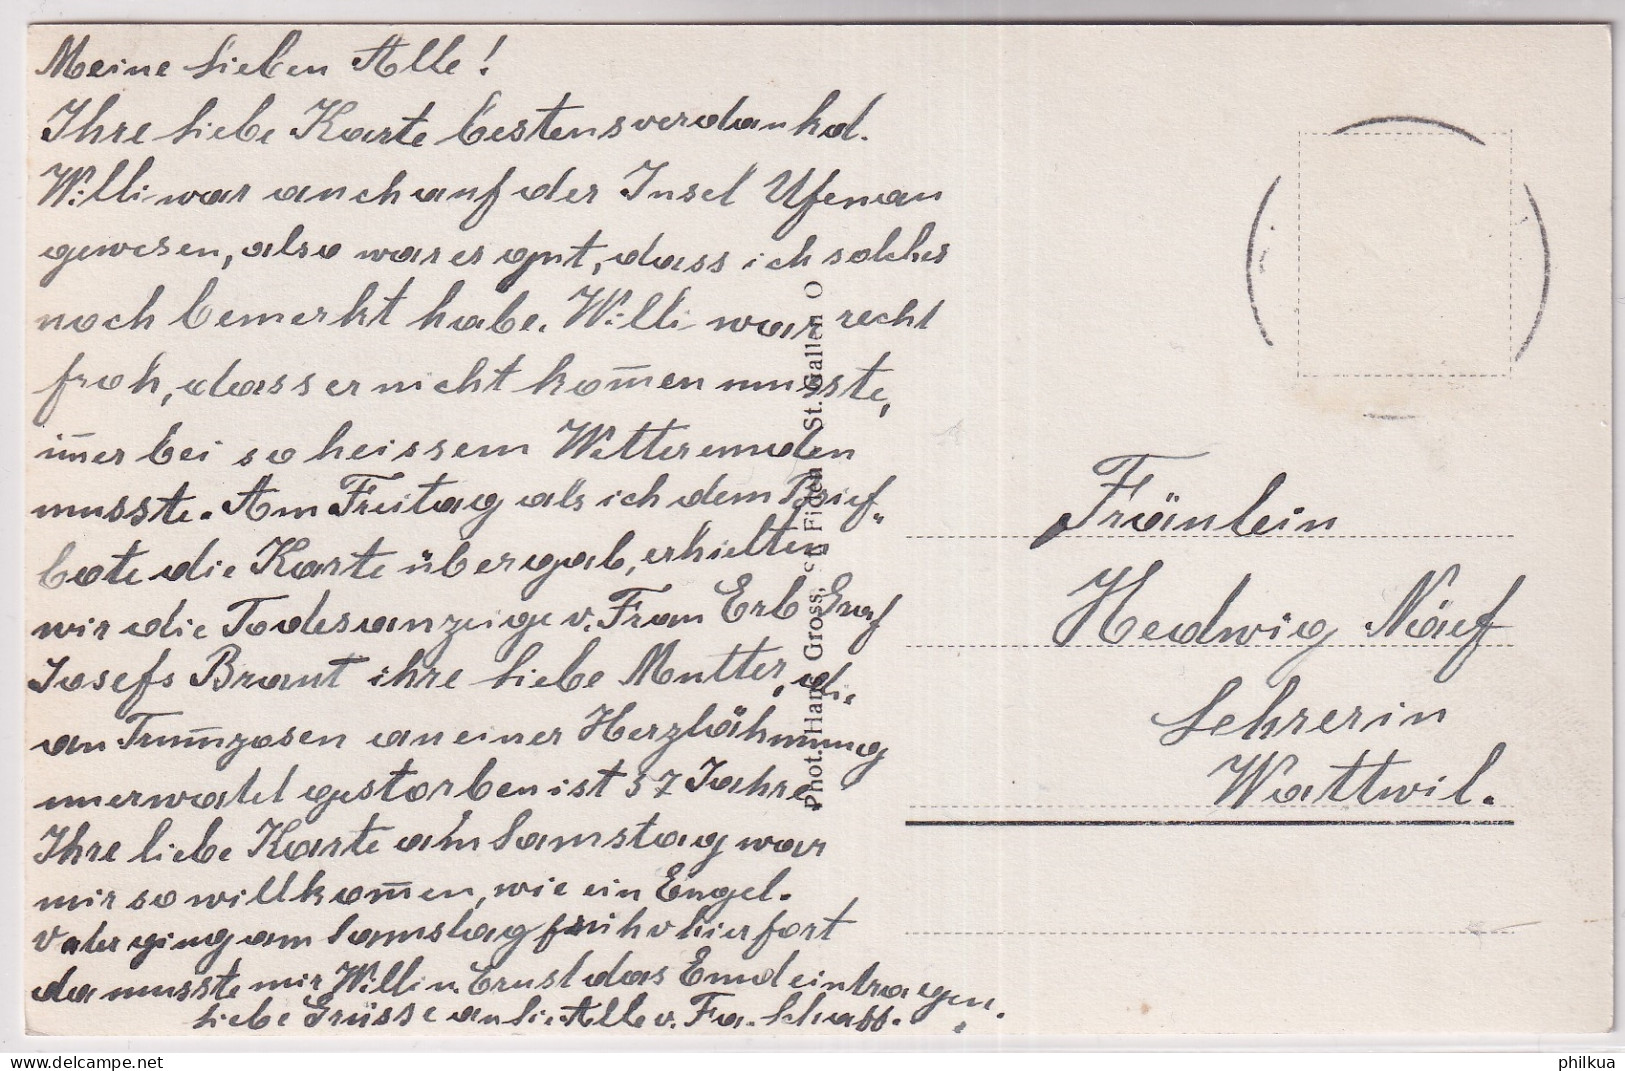 Meine Lieben Alle!
Ihre liebe Karte bestens verdankd.
Willi war auch auf der Insel Ufenau
gewesen, also war er gut, dass ich solches
noch bemerkt habe. Willi war recht
froh, dass er nicht kom̄en musste,
im̄er bei so heissem Wetter emden
musste. Am Freitag als ich dem Brief-
bote die Karte übergab, erhielten
wir die Todesanzeige v. Frau Erb Graf
Josefs Braut ihre liebe Mutter, di.
an einer Herzlähmung
unerwatet gestorben ist 57 Jahre,
Ihre liebe Karte am Samstag war
mir so willkom̄en, wie ein Engel.
Vater ging am Samstag früh v hier fort
da musste mir Willi u. Ernst das Emd eintragen.
Liebe Grüsse an Sie Alle v. Fa. Schaff.
Phot. Hans Gross, St. Fiden - St. Gallen O
Fräulein
Hedwig Näef
Lehrerin
Wattwil.
philkua